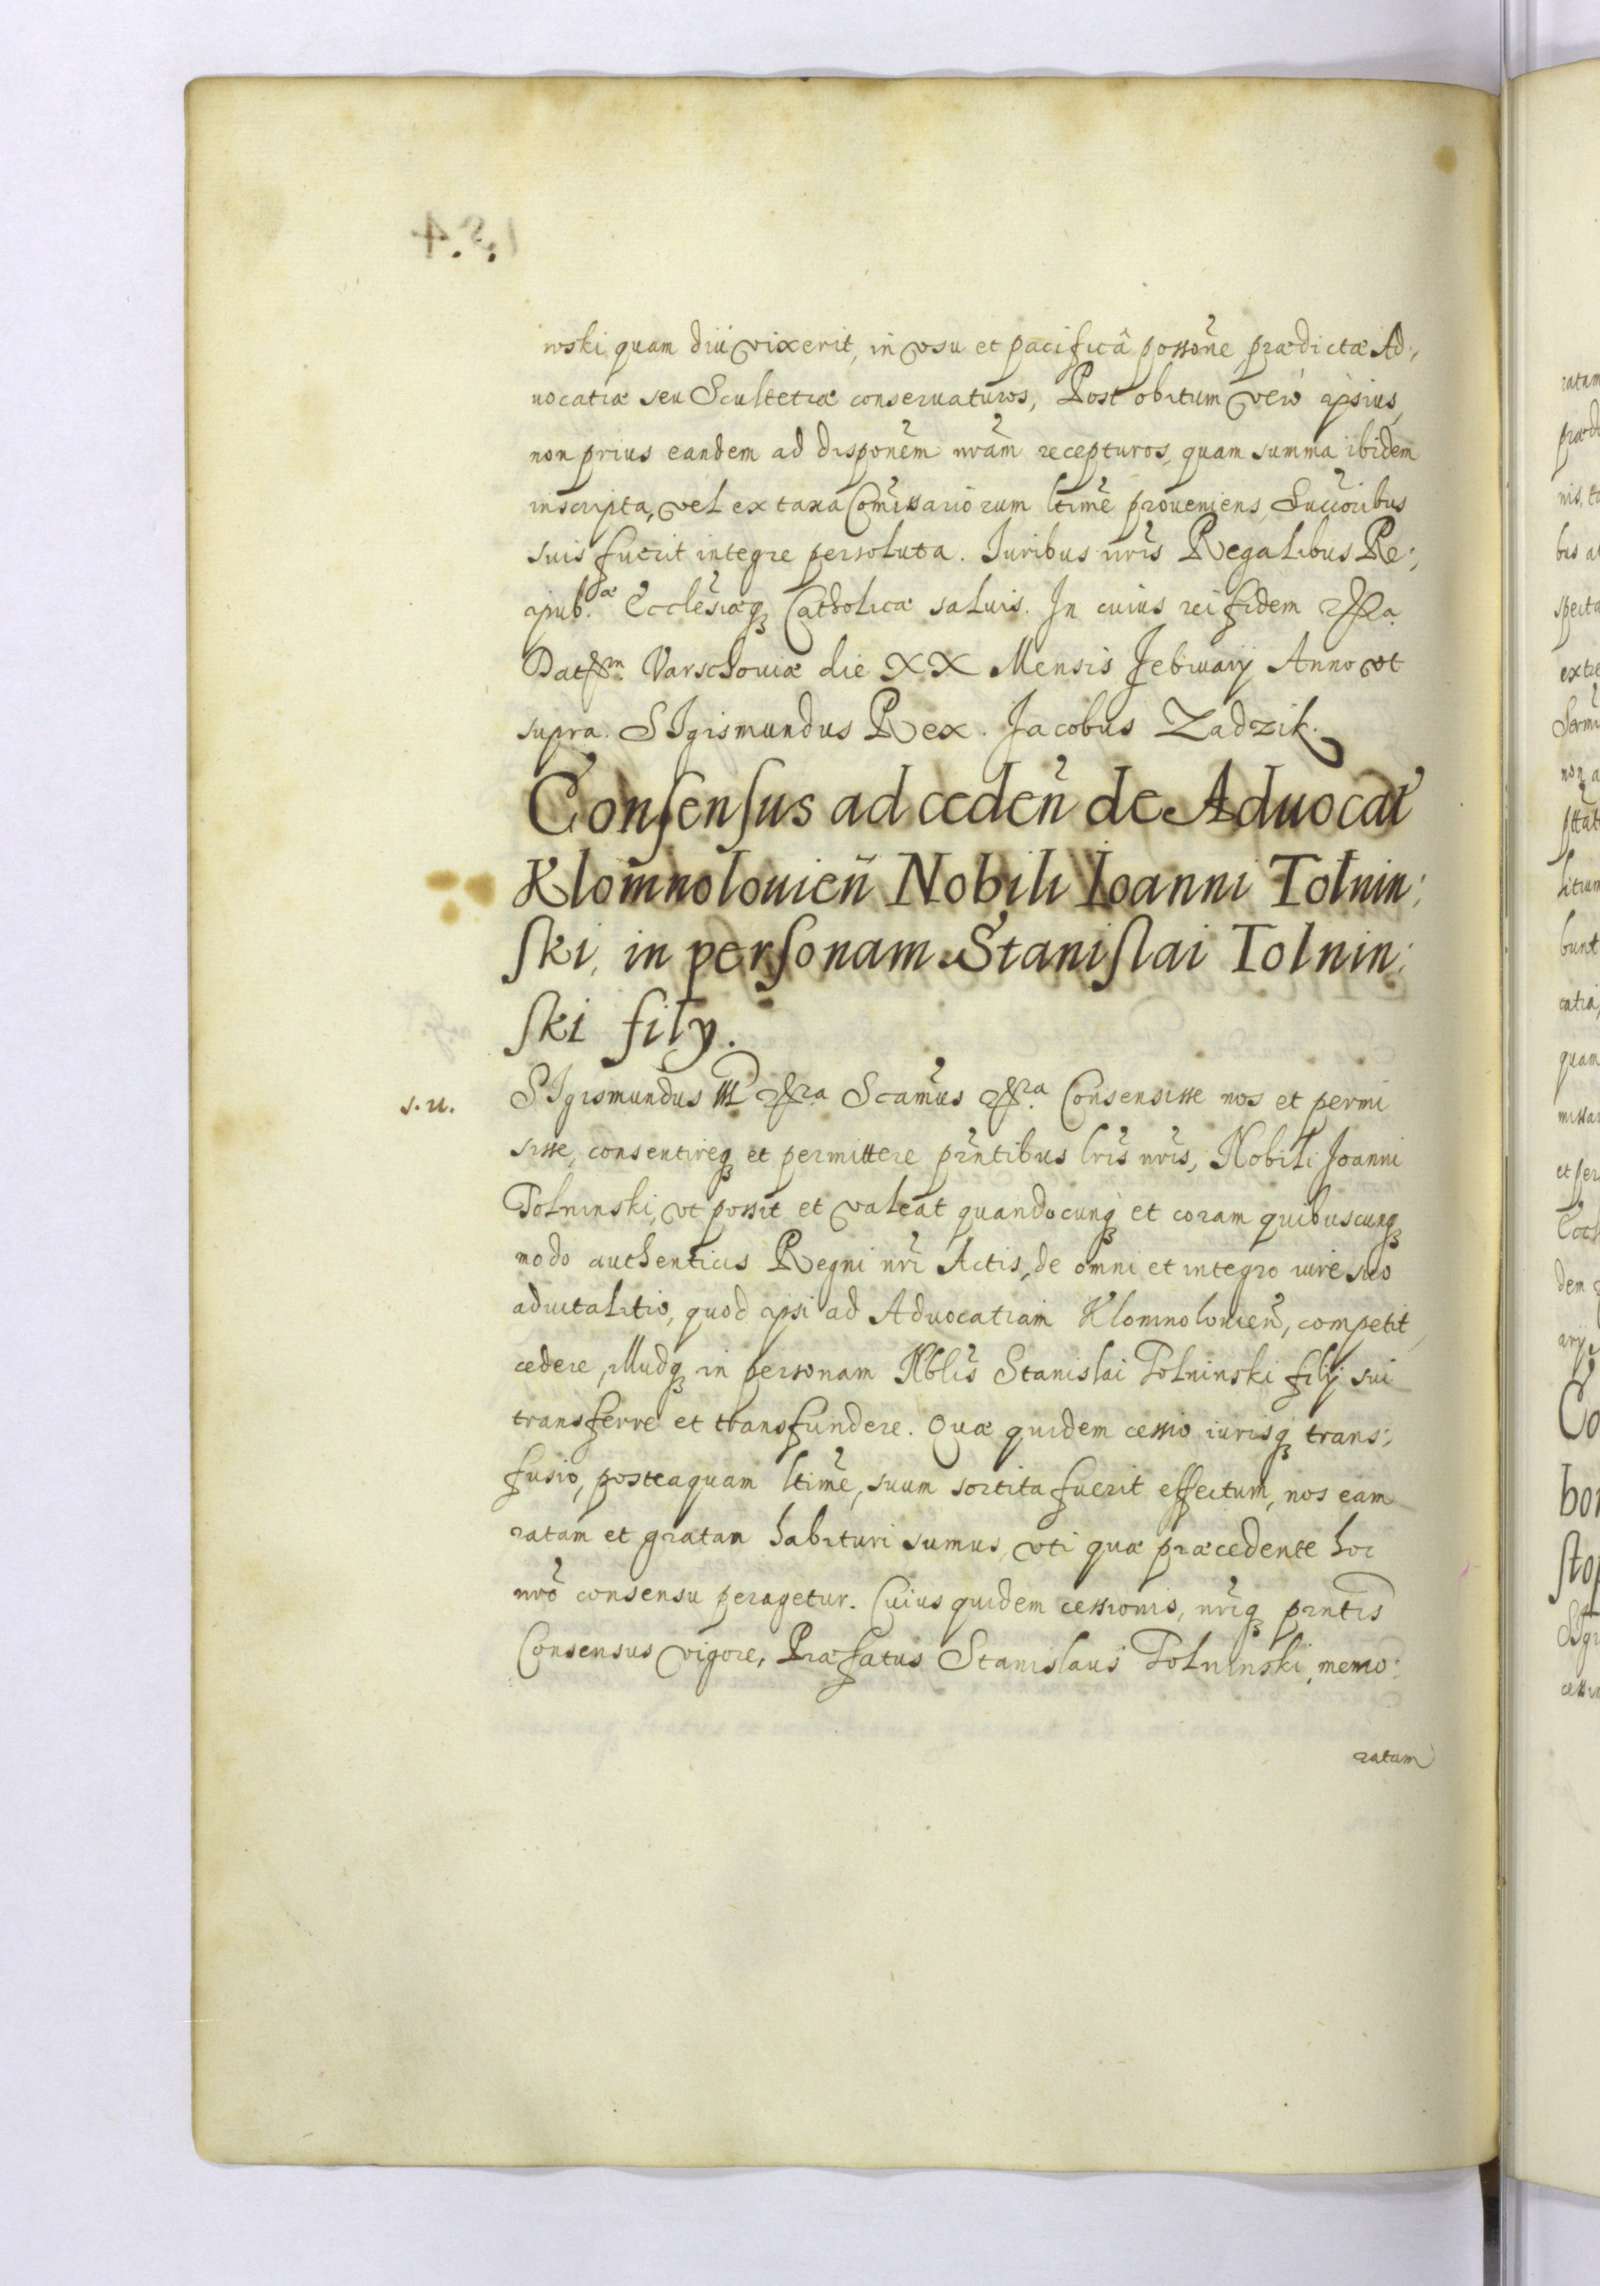 wski, quam diú vixerit, in vsu et pacificâ possoñe prædictæ Ad:
uocatiæ seu Scultetiæ conseruaturos, Post obitum verò ipsius,
non prius eandem ad disponẽm nrãm recepturos, quam summa ibidem
inscripta, vel ex taxa Com̃issariorum ltimẽ proueniens, Succõribus
suis fuerit integre persoluta. Iuribus nrĩs Regalibus Re:
ipub.ae Ecclesiæq3 Catholicæ saluis. In cuius rei fidem
Dat Varschouiæ die XX Mensis Februarij Anno vt
supra. SIgismundus Rex. Jacobus Zadzik.
Consensus ad cedeñ de Aduocat
Klomnolouieñ Nobili Ioanni Tolnin:
ski, in personam Stanislai Tolnin:
ski filÿ.
s. n. SIgismundus III Scam̃us Consensisse nos et permi
sisse, consentireq3 et permittere prñtibus lrĩs nrĩs, Nobili Joanni
Tolninski, vt possit et valeat quandocunq3 et coram quibuscunq3
modo authenticis Regni nrĩ Actis, de omni et integro iure suo
aduitalitio, quod ipsi ad Aduocatiam Klomnolouieñ, competit,
cedere, illudq3 in personam Nblĩs Stanislai Tolninski filij sui
transferre et transfundere. Quæ quidem cessio iurisq3 trans:
fusio, posteaquam ltimẽ, suum sortita fuerit effectum, nos eam
ratam et gratam habituri sumus, vti quæ præcedente hoc
nrõ consensu peragetur. Cuius quidem cessionis, nrĩq3 prñtis
Consensus vigore, Præfatus Stanislaus Tolninski, memo:
ratam